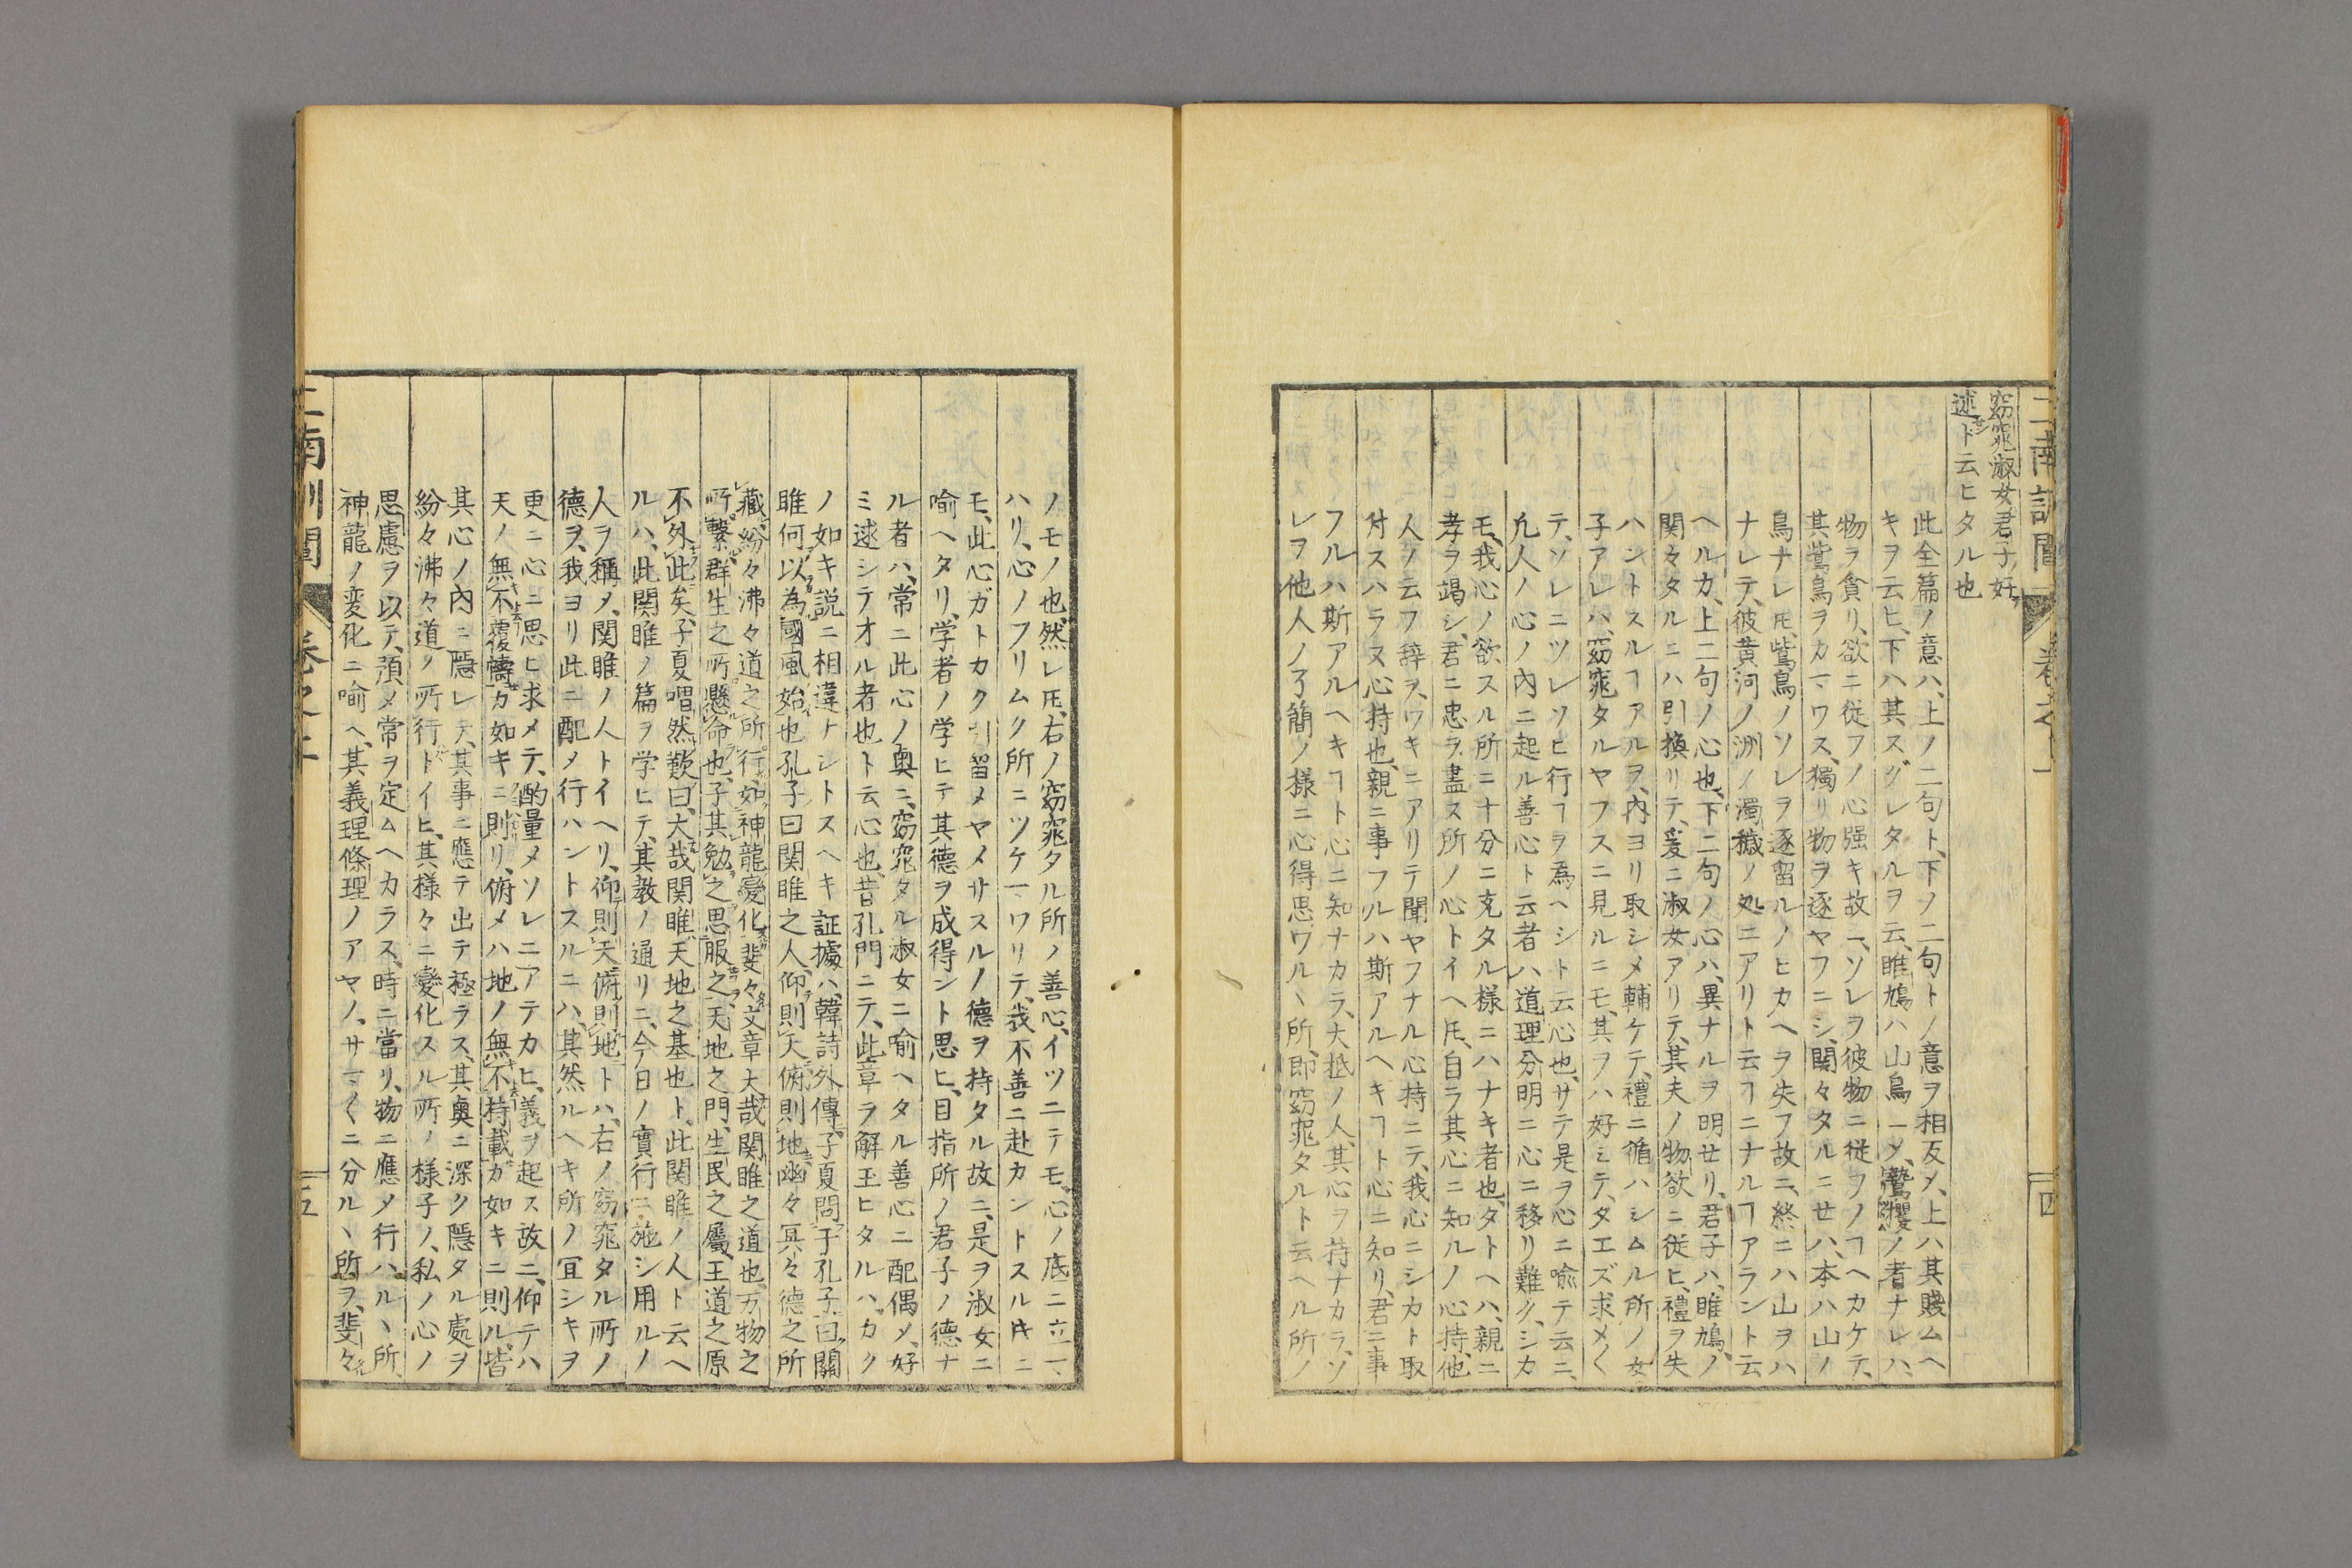 二南訓闡 卷之上 四
窈窕淑女、君子好
逑ト云ヒタル也
此全篇ノ意ハ、上ノ二句ト、下ノ二句トノ意ヲ相反〆、上ハ其賤ムヘ
キヲ云ヒ、下ハ其スグレタルヲ云、雎鳩ハ山鳥ニ〆、鷙攫ノ者ナレハ、
物ヲ貪リ、欲ニ従フノ心强キ故ニ、ソレヲ彼物ニ従ヲノヿヘカケテ、
其鷙鳥ヲカマワス、獨リ物ヲ逐ヤフニシ、関々タルニせハ、本ハ山ノ
鳥ナレ𪜈、鷙鳥ノソレヲ逐畄ルノヒカヘヲ失フ故ニ、終ニハ山ヲハ
ナレテ、彼黄河ノ洲ノ濁穢ノ処ニアリト云ヿニナルヿアラント云
ヘルカ、上二句ノ心也、下二句ノ心ハ、異ナルヲ明せリ、君子ハ、雎鳩ノ
関々タルニハ引換リテ、爰ニ淑女アリテ、其夫ノ物欲ニ従ヒ、禮ヲ失
ハントスルヿアルヲ、内ヨリ取シメ輔ケテ、禮ニ循ハシムル所ノ女
子アレハ、窈窕タルヤフスニ見ルニモ、其ヲハ好ミテ、タエズ求メ〱
テ、ソレニツレソヒ行ヿヲ爲ヘシト云心也、サテ是ヲ心ニ喩テ云ニ、
凢人ノ心ノ内ニ起ル善心ト云者ハ、道理分明ニ心ニ移リ難ク、シカ
モ、我心ノ欲スル所ニ十分ニ克タル様ニハナキ者也、タトヘハ、親ニ
孝ヲ竭シ、君ニ忠ヲ盡ス所ノ心トイヘ𪜈、自ラ其心ニ知ルノ心持、他
人ノ云フ辞ヲ、ワキニアリテ聞ヤフナル心持ニテ、我心ニシカト取
付スハラヌ心持也、親ニ事フルハ斯アルヘキヿト心ニ知リ、君ニ事
フルハ斯アルヘキヿト心ニ知ナカラ、大抵ノ人、其心ヲ持ナカラ、ソ
レヲ他人ノ了簡ノ様ニ心得思ワル丶所、即窈窕タルト云ヘル所ノ
ノモノ也、然レ𪜈、右ノ窈窕タル所ノ善心、イツニテモ、心ノ底ニ立マ
ハリ、心ノフリムク所ニツケマワリテ、我不善ニ赴カントスル𪜈ニ
モ、此心ガトカク引畄メヤメサスルノ德ヲ持タル故ニ、是ヲ淑女ニ
喻ヘタリ、学者ノ学ヒテ其德ヲ成得ント思ヒ、目指所ノ君子ノ德ナ
ル者ハ、常ニ此心ノ奥ニ、窈窕タル淑女ニ喻ヘタル善心ニ配偶〆、好
ミ逑シテオル者也ト云心也、昔孔門ニテ、此章ヲ解玉ヒタルハ、カク
ノ如キ説ニ相違ナシトスヘキ証據ハ、韓詩外傳、子夏問于孔子曰、關
雎何以為國風始也孔子曰関雎之人、仰則天、俯則地、幽々冥々、德之所
藏、紛々沸々道之所行、如神龍變化、斐々文章大哉関雎之道也、万物之
所繋、群生之所懸命也、子其勉之思服之、天地之門、生民之屬、王道之原
不外此矣、子夏喟然歎曰、大哉関雎、天地之基也ト、此関雎ノ人ト云ヘ
ルハ、此関雎ノ篇ヲ学ヒテ、其教ノ通リニ、今日ノ實行ニ施シ用ルノ
人ヲ稱〆、関雎ノ人トイヘリ、仰則天、俯則地トハ、右ノ窈窕タル所ノ
德ヲ、我ヨリ此ニ配〆行ハントスルニハ、其然ルヘキ所ノ冝シキヲ
更ニ心ニ思ヒ求メテ、酌量〆ソレニアテカヒ、義ヲ起ス故ニ、仰テハ
天ノ無不覆幬カ如キニ則リ、俯〆ハ地ノ無不持載カ如キニ則ル、皆
其心ノ內ニ隱レテ、其事ニ應テ出テ極ラス、其奥ニ深ク隱タル處ヲ
紛々沸々道ノ所行トイヒ、其様々ニ變化スル所ノ様子ノ、私ノ心ノ
思慮ヲ以テ、預〆常ヲ定ムヘカラス、時ニ當リ、物ニ應〆行ハル丶所
神龍ノ変化ニ喻ヘ、其義理條理ノアヤノ、サマ〱ニ分ル丶所ヲ、斐々
二南訓闡 卷之上 五